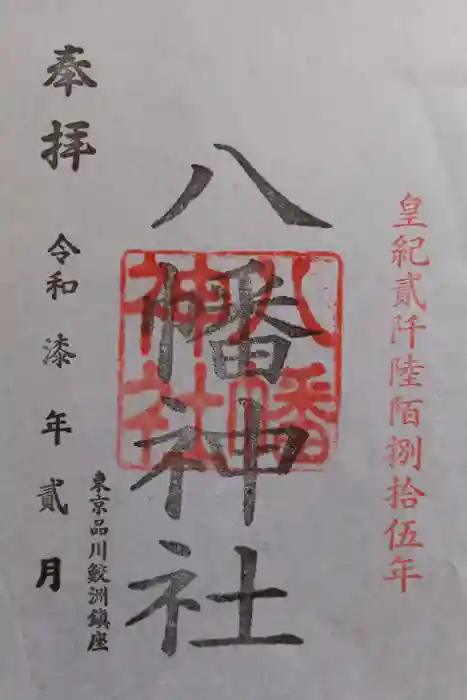 皇紀貳阡陸陌捌拾伍年
八幡神社
八幡
神社
奉拝
東京品川鮫洲鎮座
令和漆年貳月